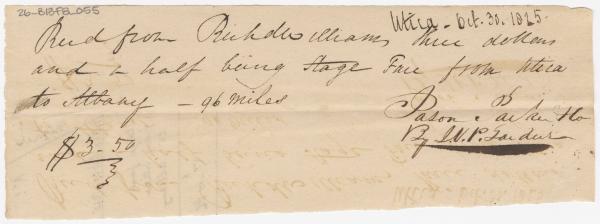 26-B1BFB_055
Utica - Oct. 30. 1825.
Recd from Richd Williams three dollars
and a half being Stage Fare from Utica
to Albany - 96 miles
Jason Parker & Co
$3-50
By J. N. P.